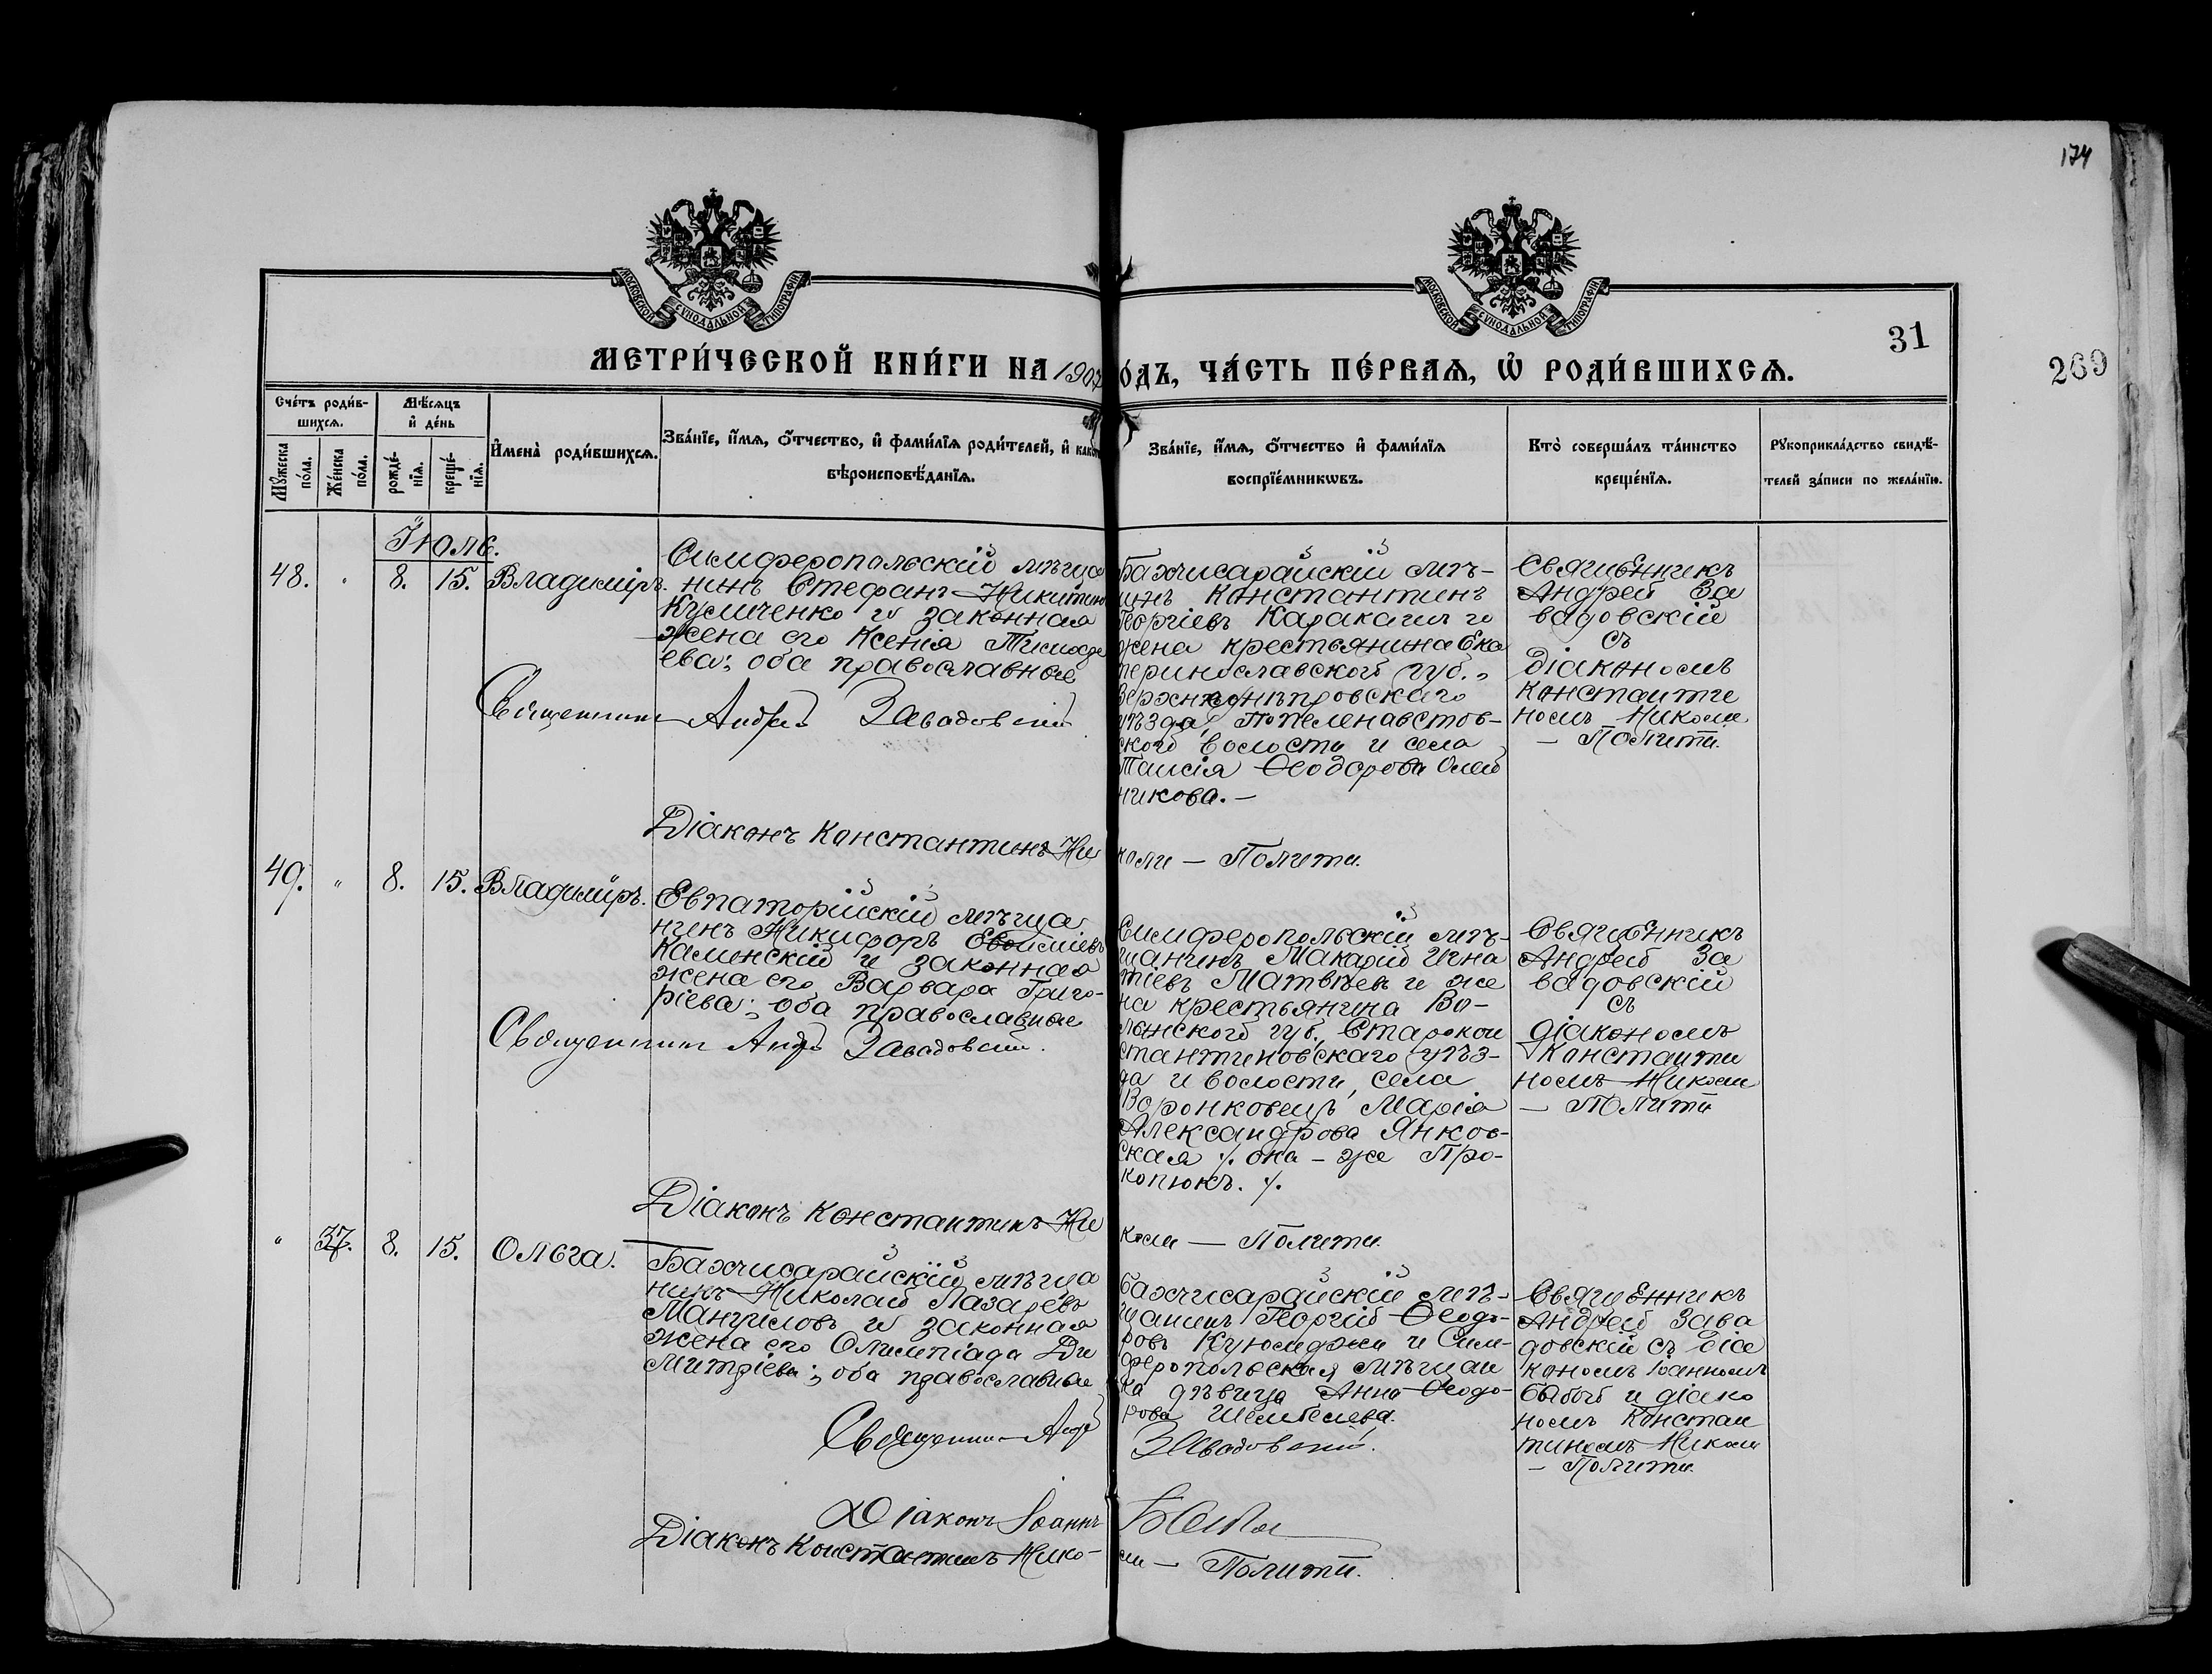 174
МОСКОВСКОЙ СѴНОДАЛЬНОЙ ТИПОГРАФІИ
МОСКОВСКОЙ СѴНОДАЛЬНОЙ ТИПОГРАФІИ
31
269
МЕТРИ́ЧЕСКОЙ КНИ́ГИ НА 1907 О́ДЪ, ЧА́СТЬ ПЕ́РВАѦ, Ѡ҆ РОДИ́ВШИХСѦ.
Сче́тъ роди́в-
шихсѧ.
Мѣ́сѧцъ
и҆ де́нь
Мꙋ́жеска по́ла.
Же́нска по́ла.
рожде́-
нїѧ.
креще́-
нїѧ.
И҆мена̀ роди́вшихсѧ.
Зва́нїе, и҆́мѧ, о҆́тчество, и҆ фами́лїѧ роди́телей, и҆ како
вѣроисповѣ́данїѧ.
Зва́нїе, и҆́мѧ, о҆́тчество и҆ фами́лїѧ
воспрїе́мникѡвъ.
Кто̀ соверша́лъ та́инство
креще́нїѧ.
Рꙋкоприкла́дство свидѣ́-
телей за́писи по жела́нїю.
Іюль.
48. " 8. 15. Владиміръ.
Симферопольскій мѣща
нинъ Стефанъ Никитинъ
Куличенко и законная
жена его Ксенія Тимоѳе
ева; оба православные
Бахчисарайскій мѣ-
щнъ Константинъ
Георгіевъ Каракашъ и
жена крестьянина Ека
теринославской губ.,
Верхнеднѣпровскаго
уѣзда,
ской волости и села
Таисія Ѳеодорова Олей
никова. —
Священникъ
Андрей За
вадовскій
съ
діакономъ
Константи
номъ Николи
— Полити.
Священникъ Андрей Завадовскій
Діаконъ Константинъ Ни
коли — Полити.
49. " 8. 15. Владиміръ.
Евпаторійскій мѣща
нинъ Никифоръ Евѳиміевъ
Каминскій и законная
жена его Варвара Григо-
ріева; оба православные
Симферопольскій мѣ-
щанинъ Макарій Игна
тіевъ Матвѣевъ и же
на крестьянина Во-
лынской губ., Старокон
стантиновскаго уѣз-
да и волости, села
Воронковецъ Марія
Александрова Янков-
ская ·/. она-же Про-
копюкъ. ·/.
Священникъ
Андрей За
вадовскій
съ
діакономъ
Константи
номъ Николи
— Полити
Священникъ Андрей Завадовскій.
Діаконъ Константинъ Ни
коли — Полити.
" 37. 8. 15. Ольга.
Бахчисарайскій мѣща
нинъ Николай Лазаревъ
Мангуловъ и законная
жена его Олимпіада Ди
митріева; оба православные
Бахчисарайскій мѣ-
щанинъ Георгій Ѳеодо-
ровъ Куюмджи и Сим-
феропольская мѣщан
ка дѣвица Анна Ѳеодо-
рова
Священникъ
Андрей Зава
довскій съ діа
кономъ Іоанномъ
и діако
номъ Констан
тиномъ Николи
— Полити.
Священникъ Андр
Завадовскій.
Діаконъ Іоаннъ
Діаконъ Константинъ Нико-
ли — Полити.